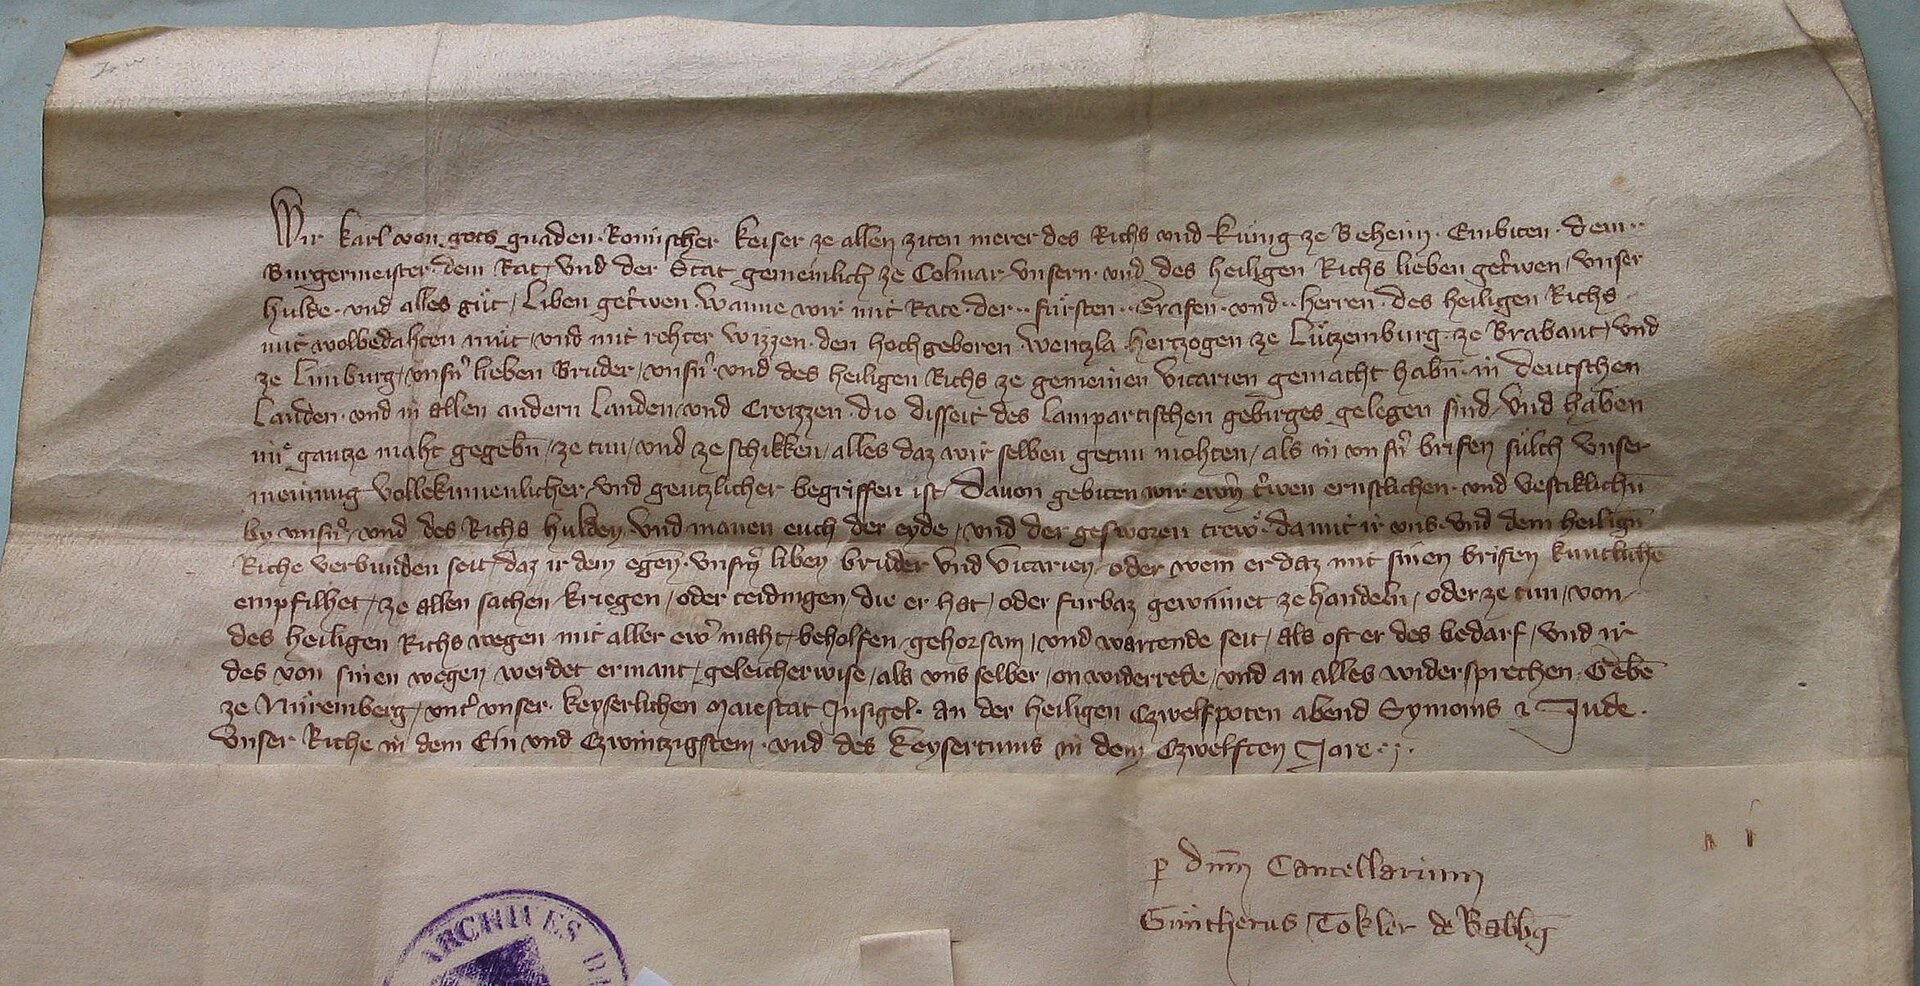 Wir karl von gots gnaden Romischer keiser ze allen ziten merer des Richs vnd kunig ze Beheim. Embiten. dem..
Burgermeister. dem Rat, vnd der Stat gemeinlich ze Colmar vnsern. vnd des heiligen Richs lieben getrwen, vnser
hulde. vnd alles gůt, Liben getrwen. Wanne wir mit Rate. der.. fůrsten.. Grafen. vnd.. herren. des heiligen Richs.
mit wolbedahten můt, vnd mit rehter wizzen. den hochgeboren. Wentzla hertzogen ze Lůtzemburg. ze Brabant, vnd
ze Limburg, vnsn̄ lieben Bruder, vnsn̄. vnd des heiligen Richs ze gemeinen vicarien gemacht habn̄. in deutschen
Landen. vnd in allen andern Landen vnd Creizzen. die disseit des lampartischen gebirges gelegen sind, vnd haben
im gantze maht gegebn̄, ze tun, vnd ze schikken, alles daz wir selben getun mohten, als in vnsn̄ brifen sůlch vnser
meinung vollekumenlicher, vnd gentzlicher begriffen ist, Dauon gebiten wir ewn̄ trwen ernstlichen. vnd vestiklichn̄
by vnsn̄, vnd des Richs hulden, vnd manen euch der eyde, vnd der gesworen trew. da mit ir vns. vnd dem heilign̄
Riche verbunden seit, daz ir dem egen̄. vnsm̄ liben bruder vnd vicarien, oder wem er daz mit sinen brifen kuntliche
empfilhet, ze allen sachen kriegen, oder teidingen, die er hat, oder furbaz gewinnet ze handeln, oder ze tun, von
des heiligen Richs wegen mit aller ewr maht, beholfen gehorsam, vnd wartende seit, als oft er des bedarf, vnd ir
des von sinen wegen werdet ermant, geleicherwise, als vns selber, on widerrede, vnd an alles widersprechen. Gebē
ze Nuremberg, vnt̄ vnser. keyserlichen Maiestat Insigel. an der heiligen Czwelfpoten abend Symonis ⁊ Jude.
Vnser Riche in dem Ein vnd Czwintzigstem. vnd des keysertums in dem Czwelften Jare.
p̄ dnm̄ Cancellarium
Guntherus Tokler de Babbḡ
ARCHIVES